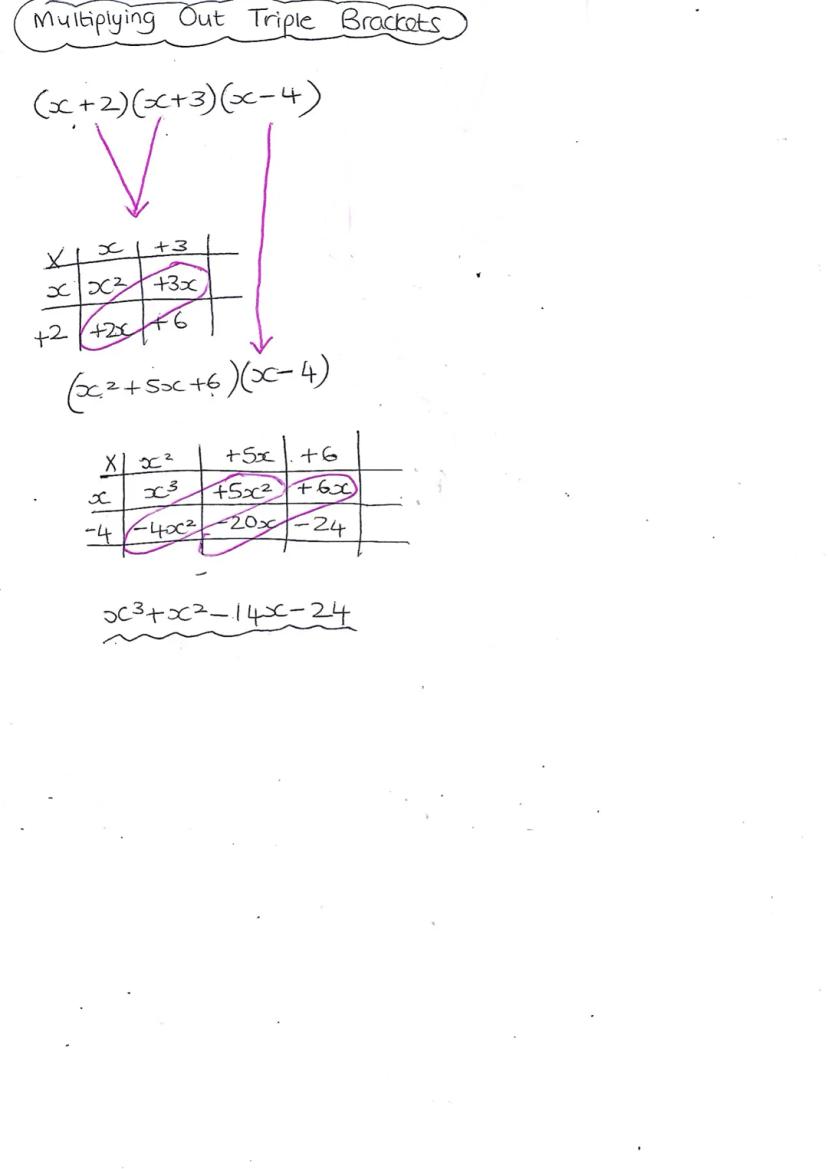 Multiplying Out Triple Brackets
(x+2)(x+3)(x-4)
X x +3
x x² +3x
+2 +2x +6
(x²+5x+6)(x-4)
X x² +5x +6
x x³ +5x² +6x
-4 -4x² -20x -24
x³+x²-14x-24